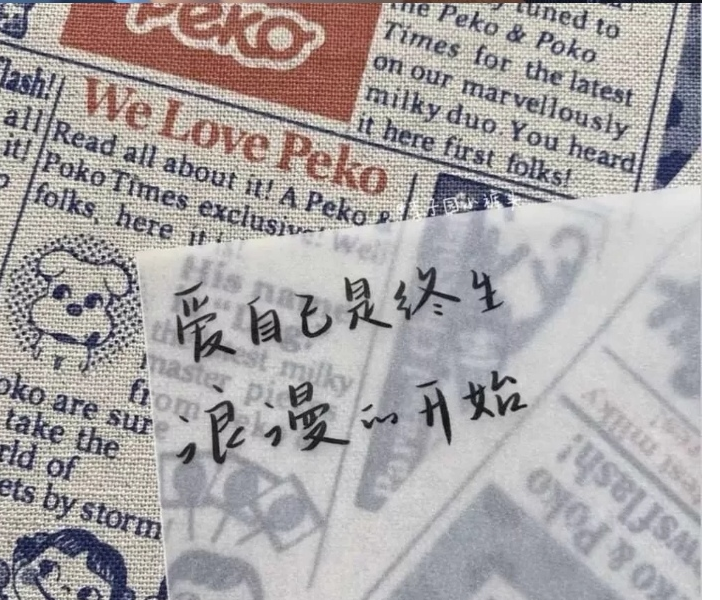 Peko
the Peko & Poko
Times for the latest
on our marvellously
milky duo. You heard
it here first folks!
flash!
all
it!
We Love Peko
Read all about it! A Peko &
Poko Times exclusive! Well
folks, here it is!
His name
爱自己是终生
浪漫的开始
oko are sur
take the
rld of
ets by storm
est milky
wsflash!
o & Poko